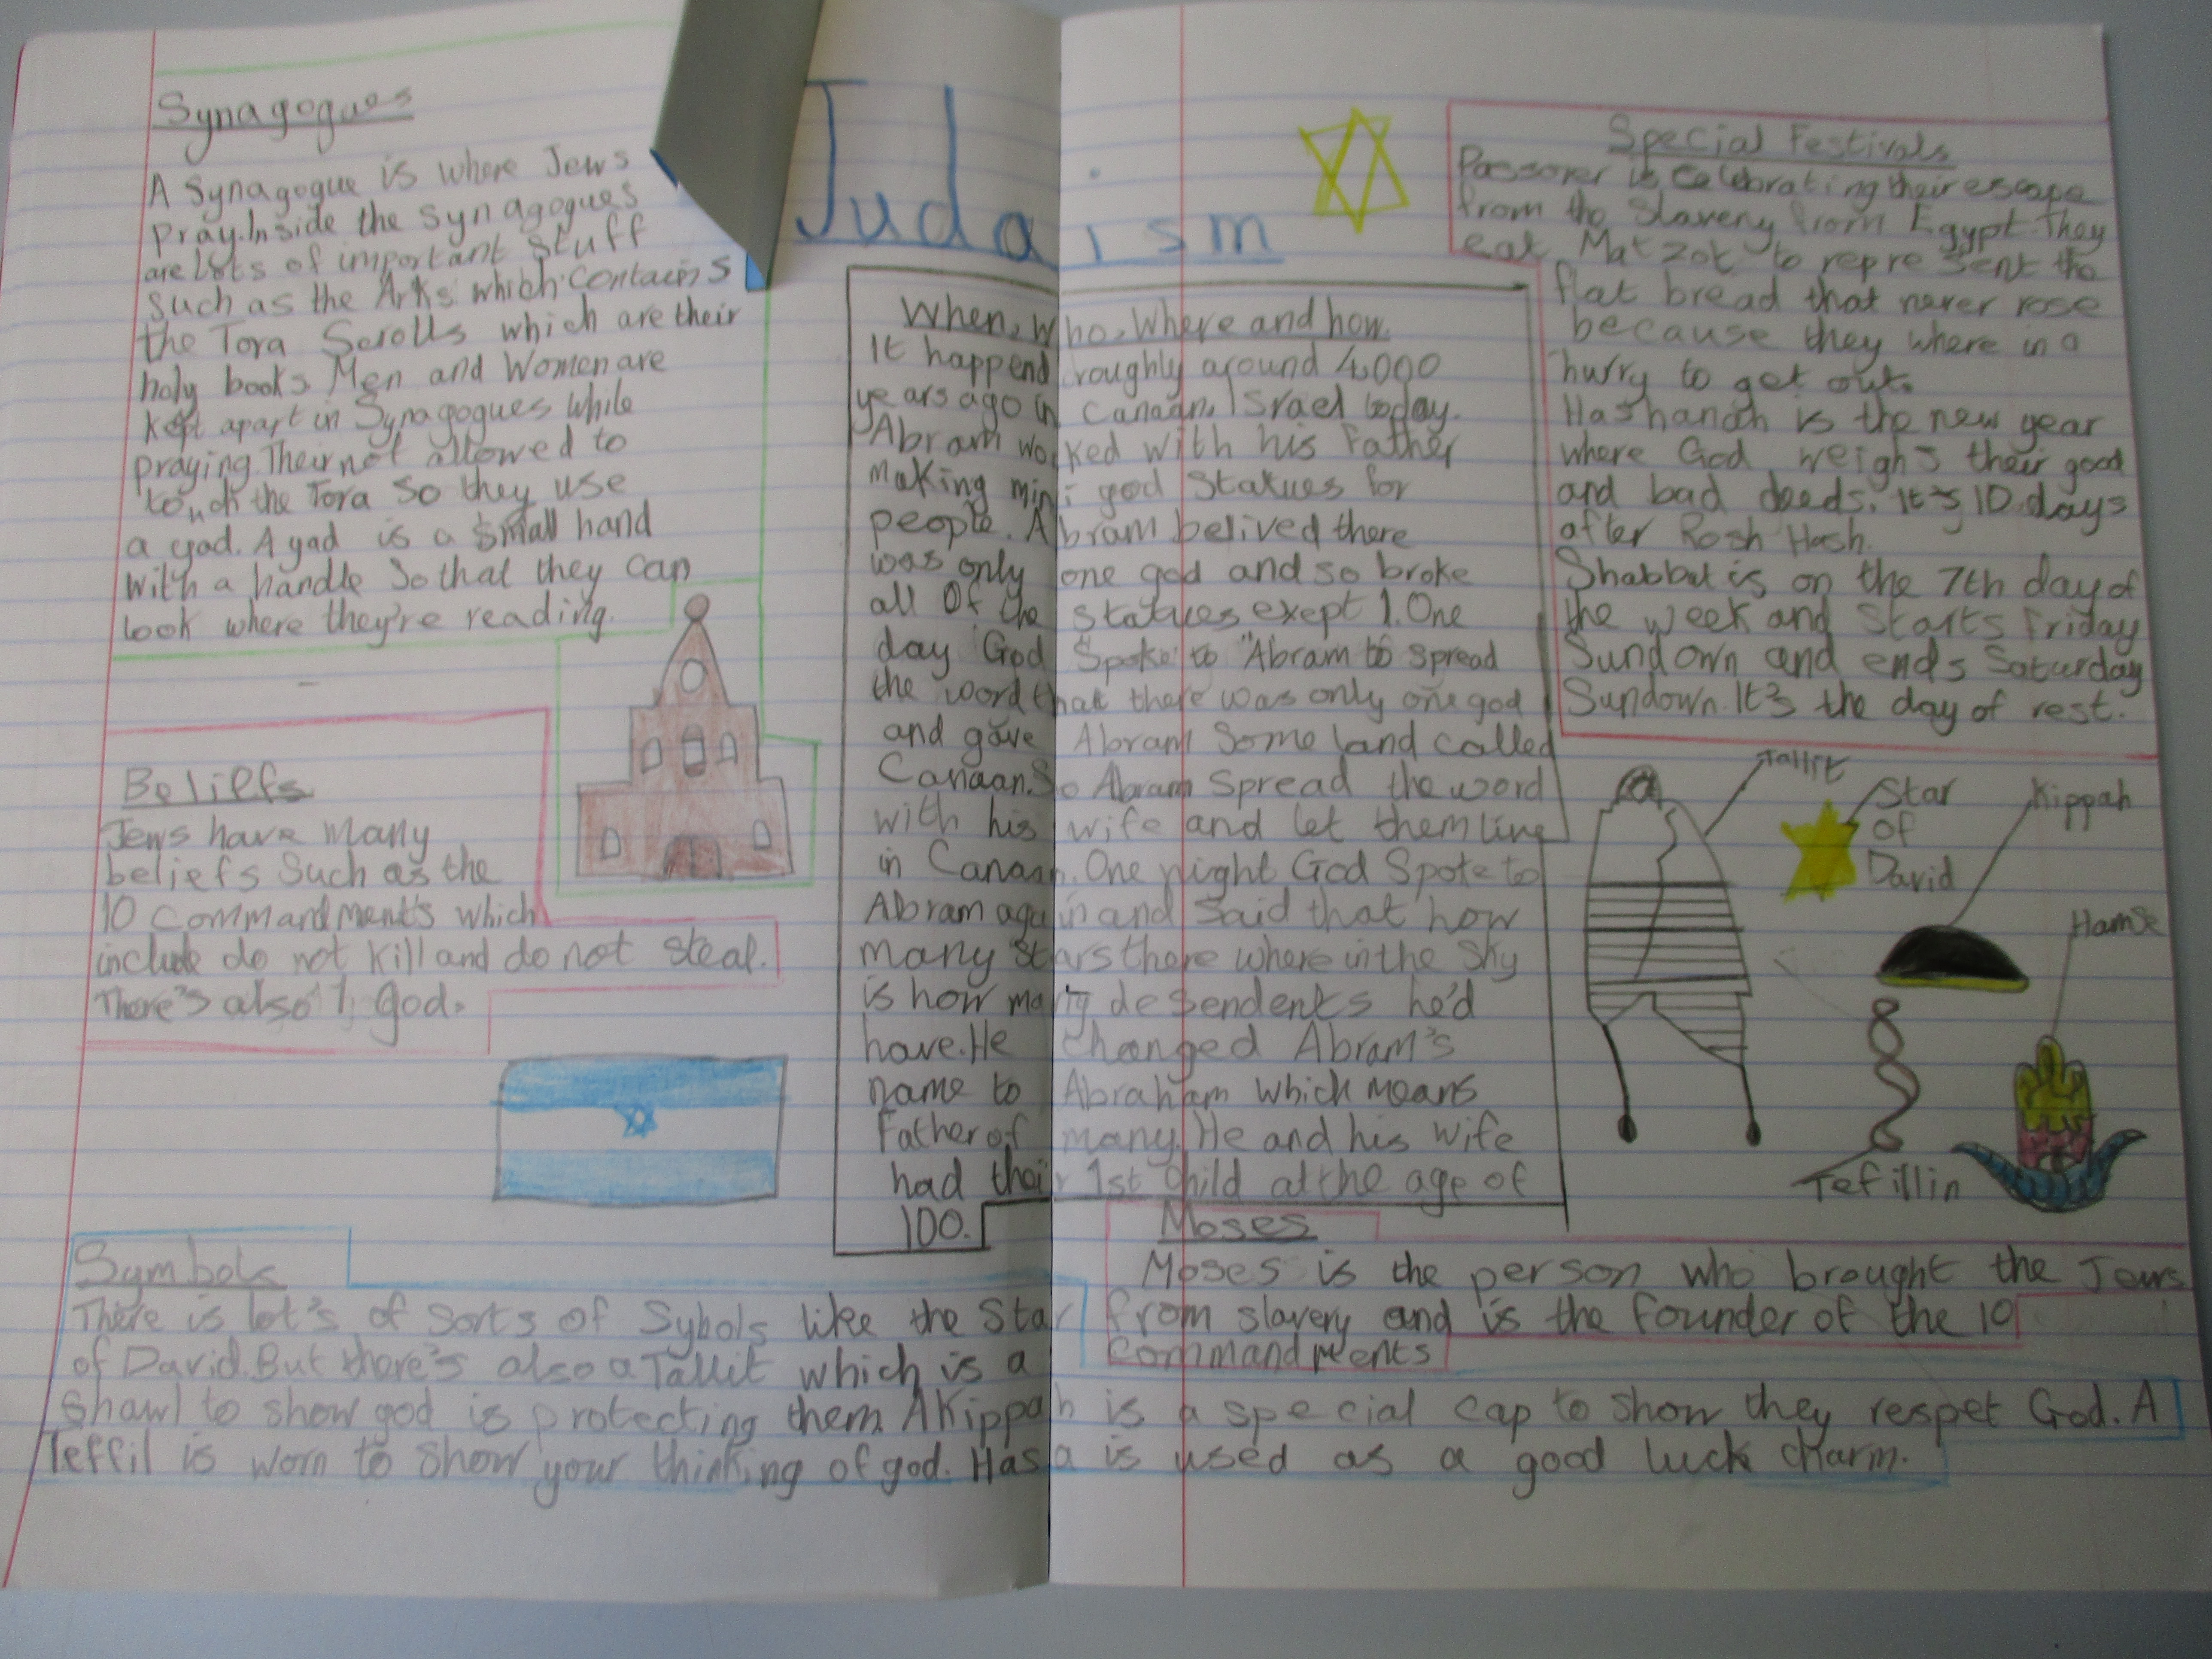 Judaism
Synagogues
A Synagogue is where Jews
pray. Inside the synagogues
are lots of important stuff
such as the Arks which contains
the Tora Scrolls which are their
holy books. Men and Women are
kept apart in Synagogues while
praying. Their not allowed to
touch the Tora so they use
a yad. A yad is a small hand
with a handle so that they can
look where they're reading.
Beliefs
Jews have many
beliefs such as the
10 commandment's which
include do not kill and do not steal.
There's also 1 god.
When, Who, Where and how.
It happend roughly around 4,000
years ago in Canaan, Israel today.
Abram worked with his father
making mini god statues for
people. Abram belived there
was only one god and so broke
all of the statues exept 1. One
day God Spoke to Abram to spread
the word that there was only one god
and gave Abram some land called
Canaan. So Abram spread the word
with his wife and let them live
in Canaan. One night God Spoke to
Abram again and said that how
many stars there where in the sky
is how many desendents he'd
have. He changed Abram's
name to Abraham which means
Father of many. He and his wife
had their 1st child at the age of
100.
Special Festivals
Passover is celebrating their escape
from the slavery from Egypt. They
eat Matzot to represent the
flat bread that never rose
because they where in a
hurry to get out.
Hashanah is the new year
where God weighs their good
and bad deeds. It's 10 days
after Rosh Hash.
Shabbut is on the 7th day of
the week and starts friday
Sundown and ends Saturday
Sundown. It's the day of rest.
Tallit
Star
of
David
Kippah
Hamse
Tefillin
Moses
Moses is the person who brought the Jews
from slavery and is the founder of the 10
commandments
Symbols
There is lot's of sorts of Sybols like the Star
of David. But there's also a Tallit which is a
shawl to show god is protecting them. A Kippah is a special cap to show they respet God. A
Teffil is worn to show your thinking of god. Hasa is used as a good luck charm.